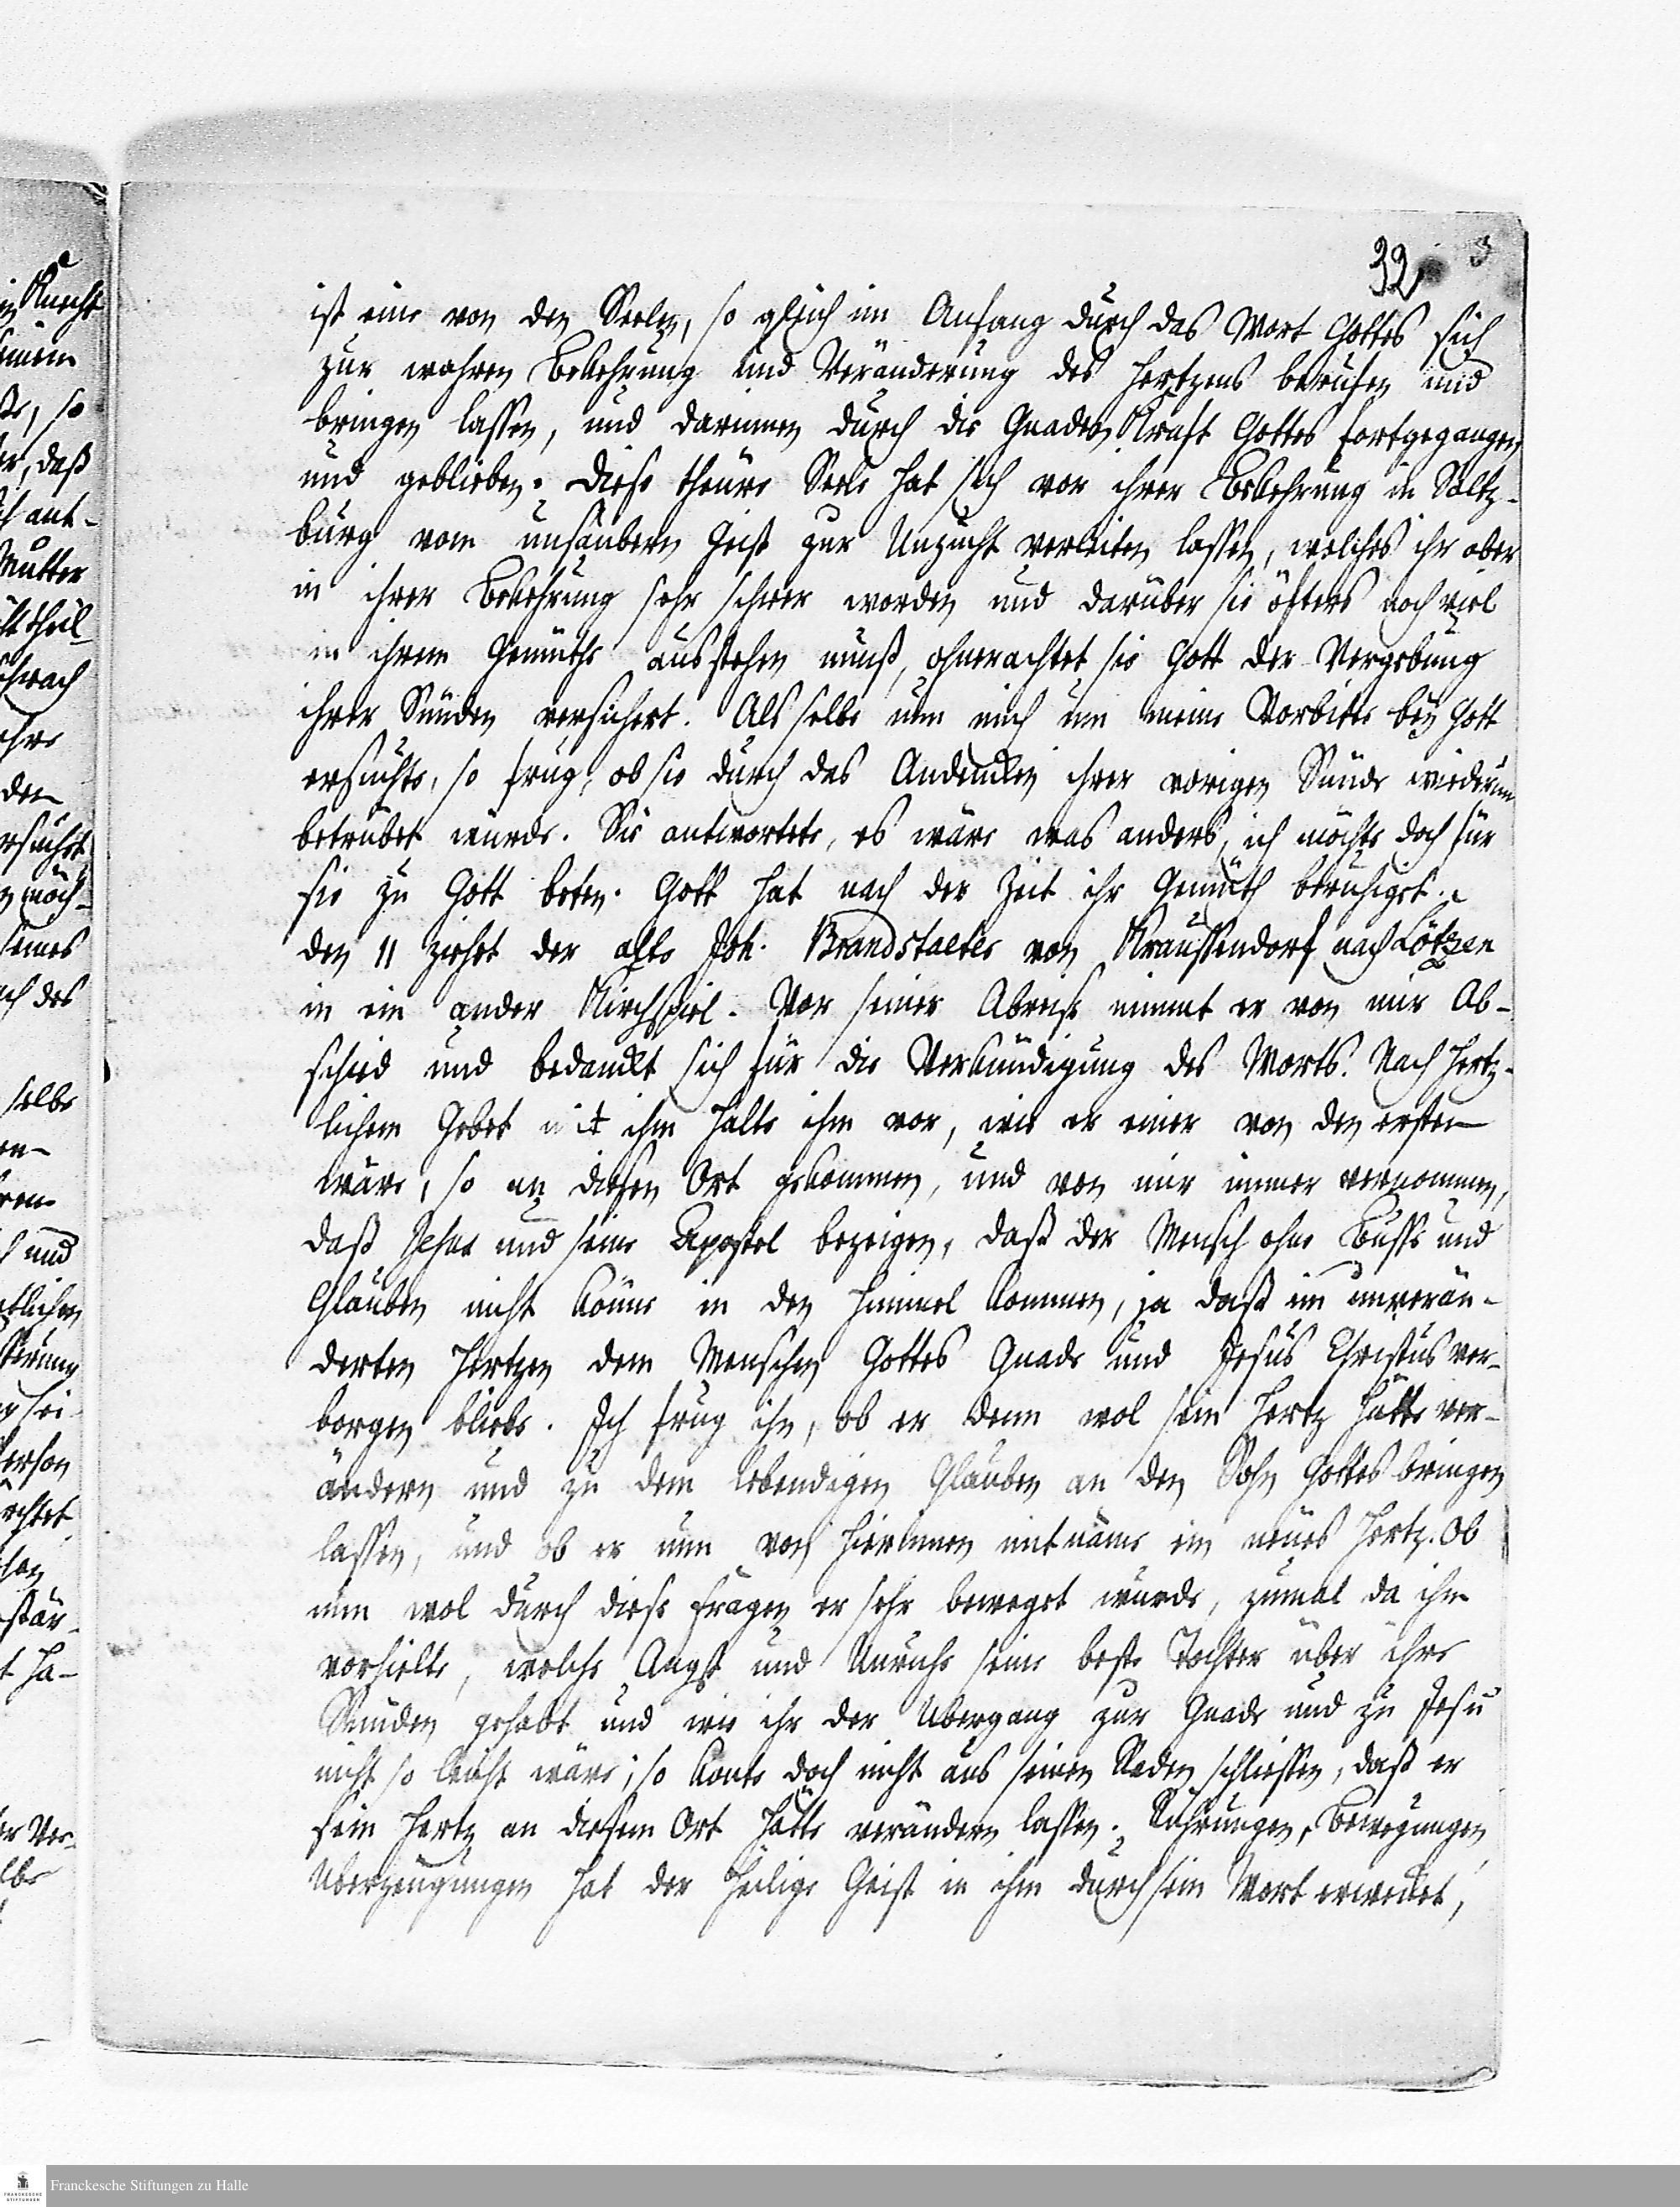 32 3
ist eine von den Seelen, so gleich im Anfang durch das Wort Gottes sich
zur wahren Bekehrung und Veränderung des Hertzens beruffen und
bringen lassen, und darinnen durch die Gnaden Kraft Gottes fortgegangen
und geblieben. Diese theure Seele hat sich vor ihrer Bekehrung in Saltz-
burg vom unsaubern Geist zur Unzucht verleiten lassen, welches ihr aber
in ihrer Bekehrung sehr schwer worden und darüber sie öfters noch viel
in ihrem Gemüthe ausstehen muß, ohnerachtet sie Gott der Vergebung
ihrer Sünden versichert. Als selbe nun mich um meine Vorbitte bey Gott
ersuchte, so frug, ob sie durch das Andencken ihrer vorigen Sünde wiederum
betrübet würde. Sie antwortete, es wäre was anders, ich möchte doch für
sie zu Gott beten. Gott hat nach der Zeit ihr Gemüth beruhiget.
den 11 ziehet der alte Joh. Brandstaeter von Kraussendorf nach Lötzen
in ein ander Kirchspiel. Vor seiner Abreise nimmt er von mir Ab-
schied und bedanckt sich für die Verkündigung des Worts. Nach hertz-
lichem Gebet mit ihm halte ihm vor, wie er einer von den ersten
wäre, so an diesen Ort gekommen, und von mir immer vernommen,
daß Jesus und seine Apostel bezeigen, daß der Mensch ohne Busse und
Glauben nicht könne in den Himmel kommen, ja daß im unverän-
derten Hertzen dem Menschen Gottes Gnade und Jesus Christus ver-
borgen bliebe. Ich frug ihn, ob er denn wol sein Hertz hätte ver-
ändern und zu dem lebendigen Glauben an den Sohn Gottes bringen
lassen, und ob er nun von hierinnen mitnäme ein neues Hertz. Ob
nun wol durch diese Fragen er sehr beweget wurde, zumal da ihm
vorhielte, welche Angst und Unruhe seine beste Tochter über ihre
Sünden gehabt und wie ihr der Ubergang zur Gnade und zu Jesu
nicht so leicht wäre; so konte doch nicht aus seinen Reden schliessen, daß er
sein Hertz an diesem Ort hätte verändern lassen. Rührungen, Bewegungen,
Uberzeugungen hat der Heilige Geist in ihm durch sein Wort erwecket,
Franckesche Stiftungen zu Halle